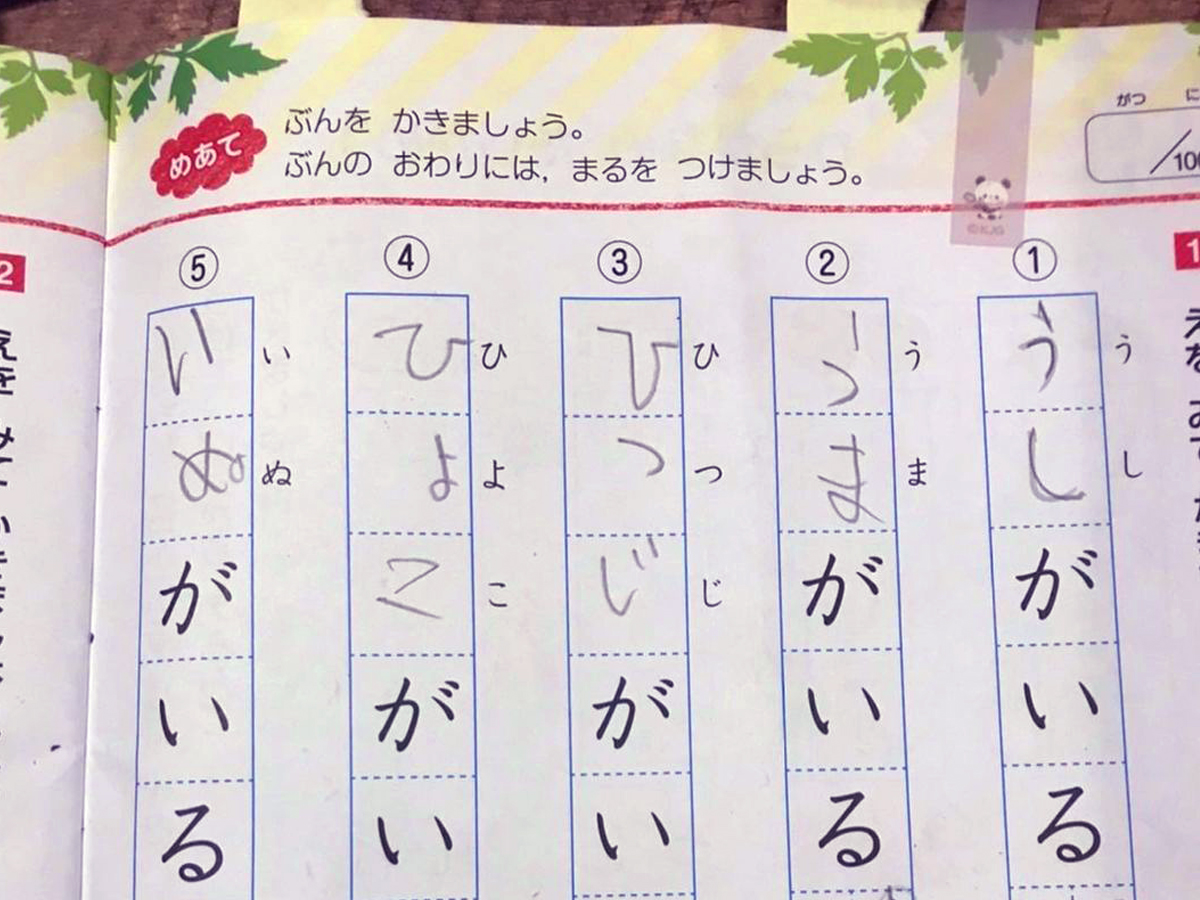 めあて
ぶんを かきましょう。
ぶんの おわりには，まるを つけましょう。
がつ
/100
1
①
うしがいる
うし
②
うまがいる
うま
③
ひつじがい
ひつじ
④
ひよこがい
ひよこ
⑤
いぬがいる
いぬ
2